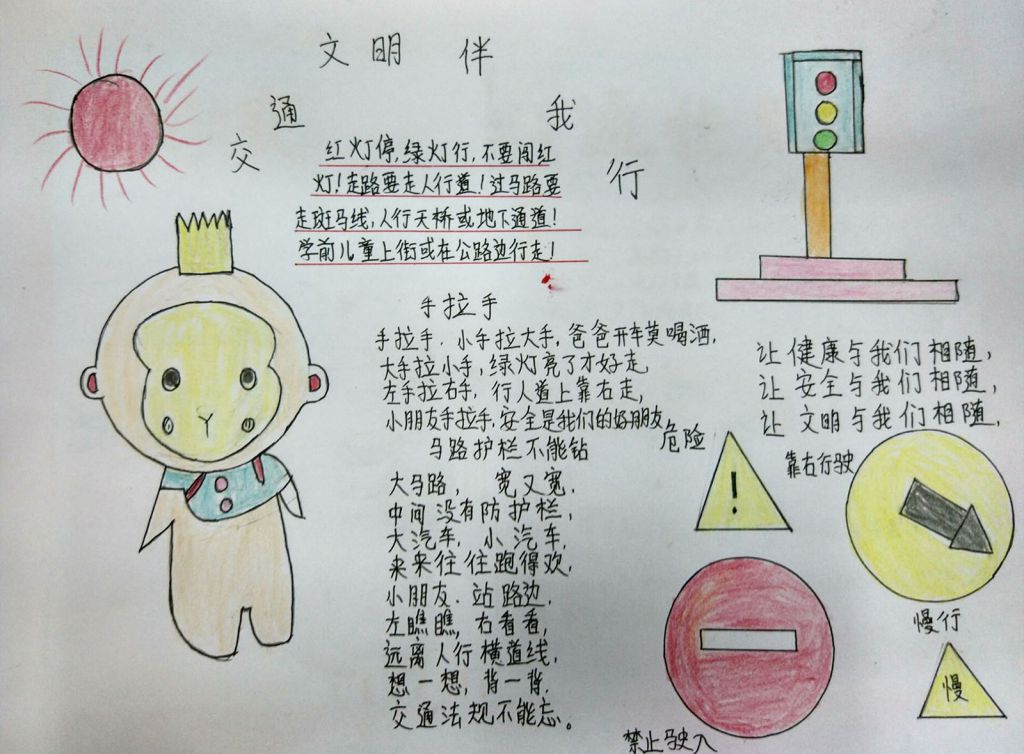 交通文明伴我行
红灯停,绿灯行,不要闯红
灯!走路要走人行道!过马路要
走斑马线,人行天桥或地下通道!
学前儿童上街或在公路边行走!
手拉手
手拉手.小手拉大手,爸爸开车莫喝酒,
大手拉小手,绿灯亮了才好走,
左手拉右手,行人道上靠右走,
小朋友手拉手,安全是我们的好朋友
马路护栏不能钻
大马路,宽又宽,
中间没有防护栏,
大汽车,小汽车,
来来往往跑得欢,
小朋友.站路边,
左瞧瞧,右看看,
远离人行横道线,
想一想,背一背,
交通法规不能忘。
让健康与我们相随,
让安全与我们相随,
让文明与我们相随,
危险
!
靠右行驶
慢行
慢
禁止驶入